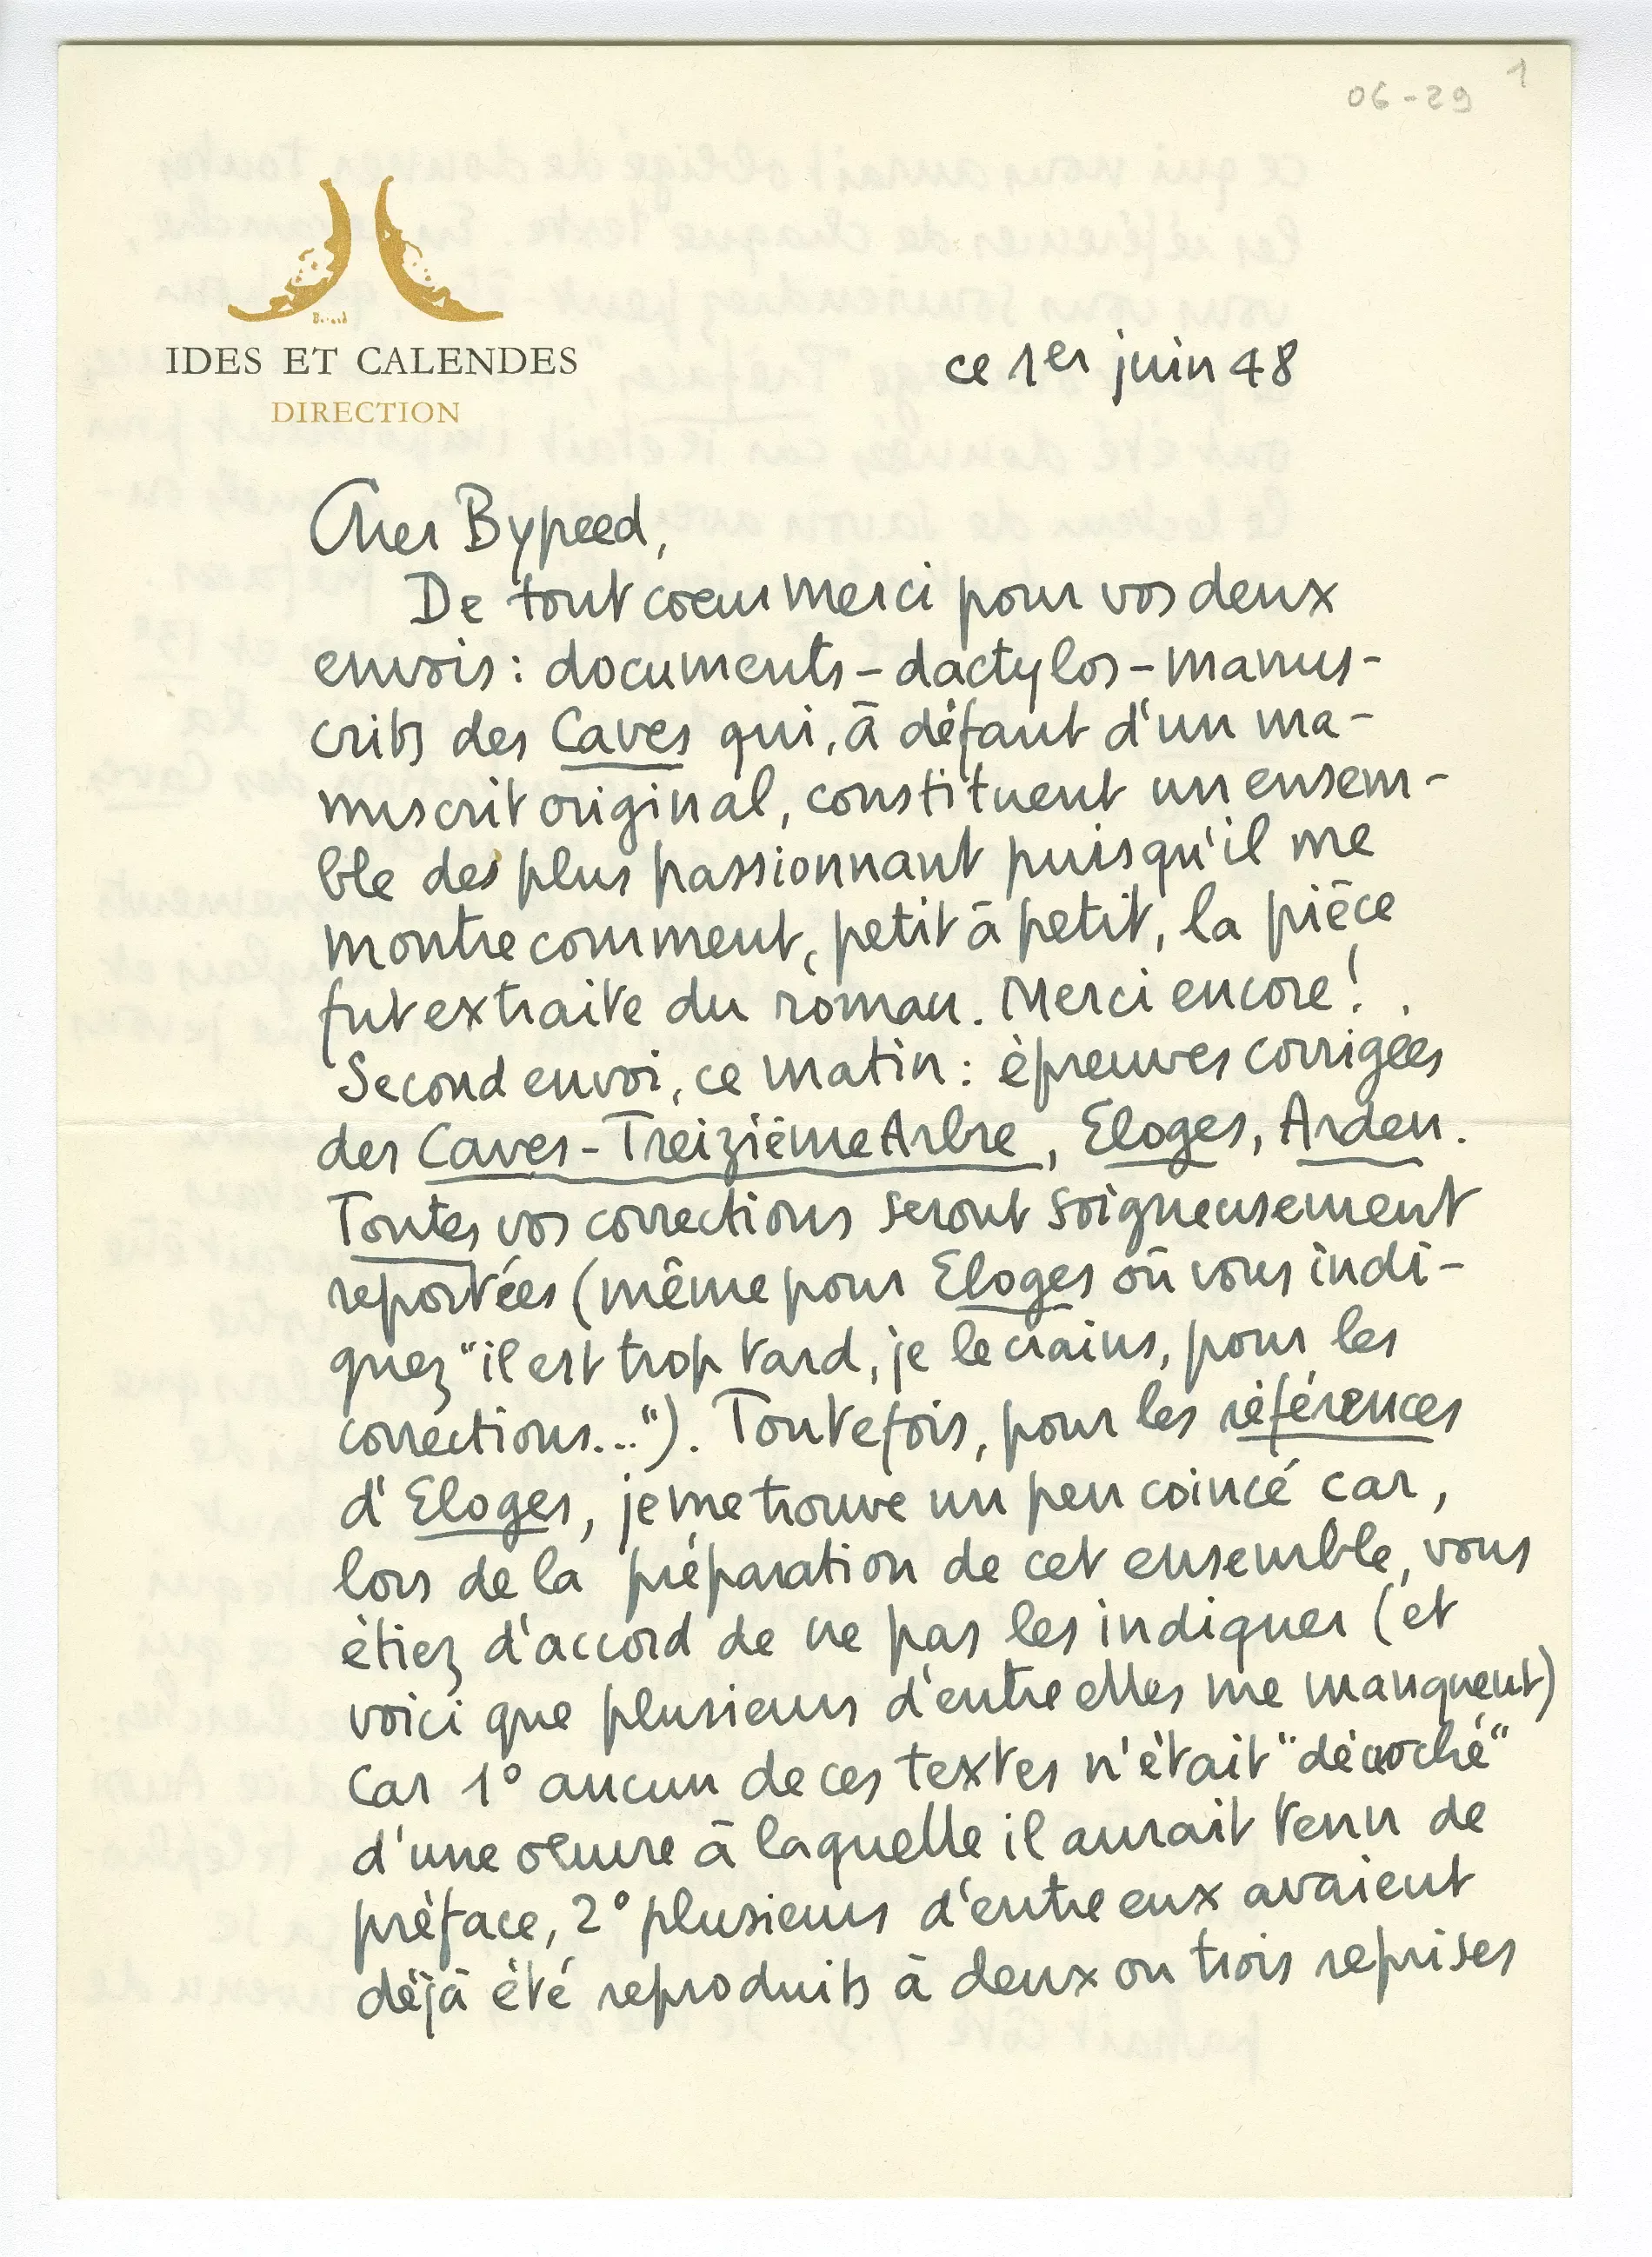 1
06-29
IDES ET CALENDES
DIRECTION
ce 1er juin 48
Cher Bypeed,
De tout coeur merci pour vos deux
envois : documents - dactylos - manus-
crits des Caves qui, à défaut d'un ma-
nuscrit original, constituent un ensem-
ble des plus passionnant puisqu'il me
montre comment, petit à petit, la pièce
fut extraite du roman. Merci encore !
Second envoi, ce matin : épreuves corrigées
des Caves - Treizième Arbre, Eloges, Arden.
Toutes vos corrections seront soigneusement
reportées (même pour Eloges où vous indi-
quez "il est trop tard, je le crains, pour les
corrections..."). Toutefois, pour les références
d'Eloges, je me trouve un peu coincé car,
lors de la préparation de cet ensemble, vous
étiez d'accord de ne pas les indiquer (et
voici que plusieurs d'entre elles me manquent)
Car 1° aucun de ces textes n'était "décroché"
d'une oeuvre à laquelle il aurait tenu de
préface, 2° plusieurs d'entre eux avaient
déjà été reproduits à deux ou trois reprises